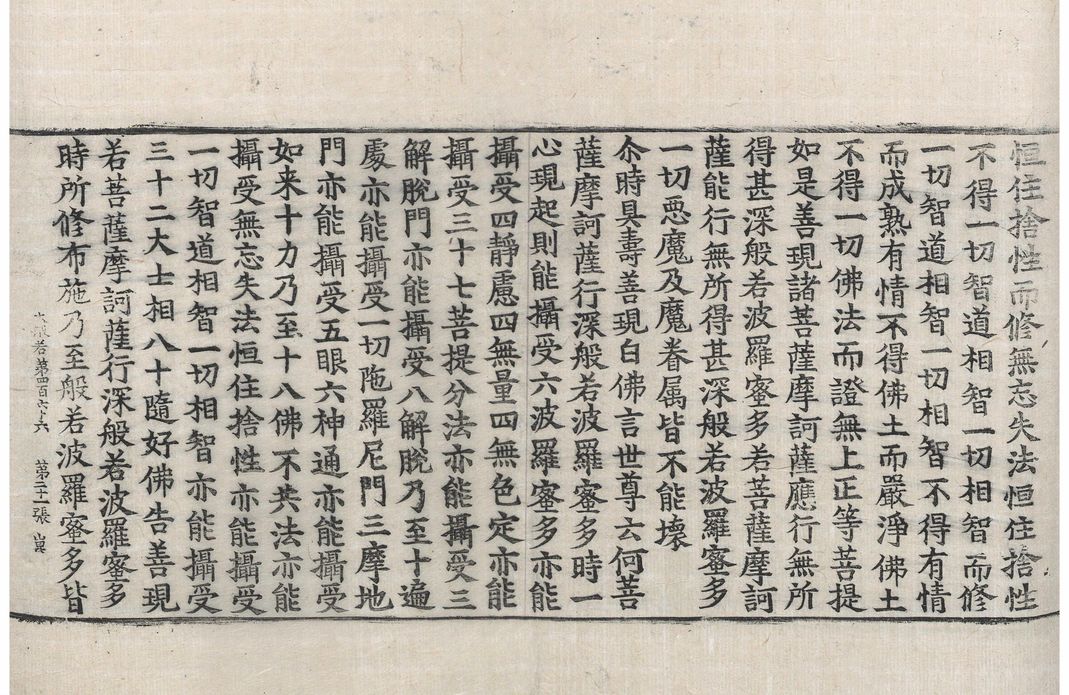 恒住捨性而修無忘失法恒住捨性
不得一切智道相智一切相智而修
一切智道相智一切相智不得有情
而成熟有情不得佛土而嚴淨佛土
不得一切佛法而證無上正等菩提
如是善現諸菩薩摩訶薩應行無所
得甚深般若波羅蜜多若菩薩摩訶
薩能行無所得甚深般若波羅蜜多
一切惡魔及魔眷属皆不能壞
尒時具壽善現白佛言世尊云何菩
薩摩訶薩行深般若波羅蜜多時一
心現起則能攝受六波羅蜜多亦能
攝受四靜慮四無量四無色定亦能
攝受三十七菩提分法亦能攝受三
解脫門亦能攝受八解脫乃至十遍
處亦能攝受一切陁羅尼門三摩地
門亦能攝受五眼六神通亦能攝受
如来十力乃至十八佛不共法亦能
攝受無忘失法恒住捨性亦能攝受
一切智道相智一切相智亦能攝受
三十二大士相八十隨好佛告善現
若菩薩摩訶薩行深般若波羅蜜多
時所修布施乃至般若波羅蜜多皆
大般若第四百六十六 第二十一張 崗